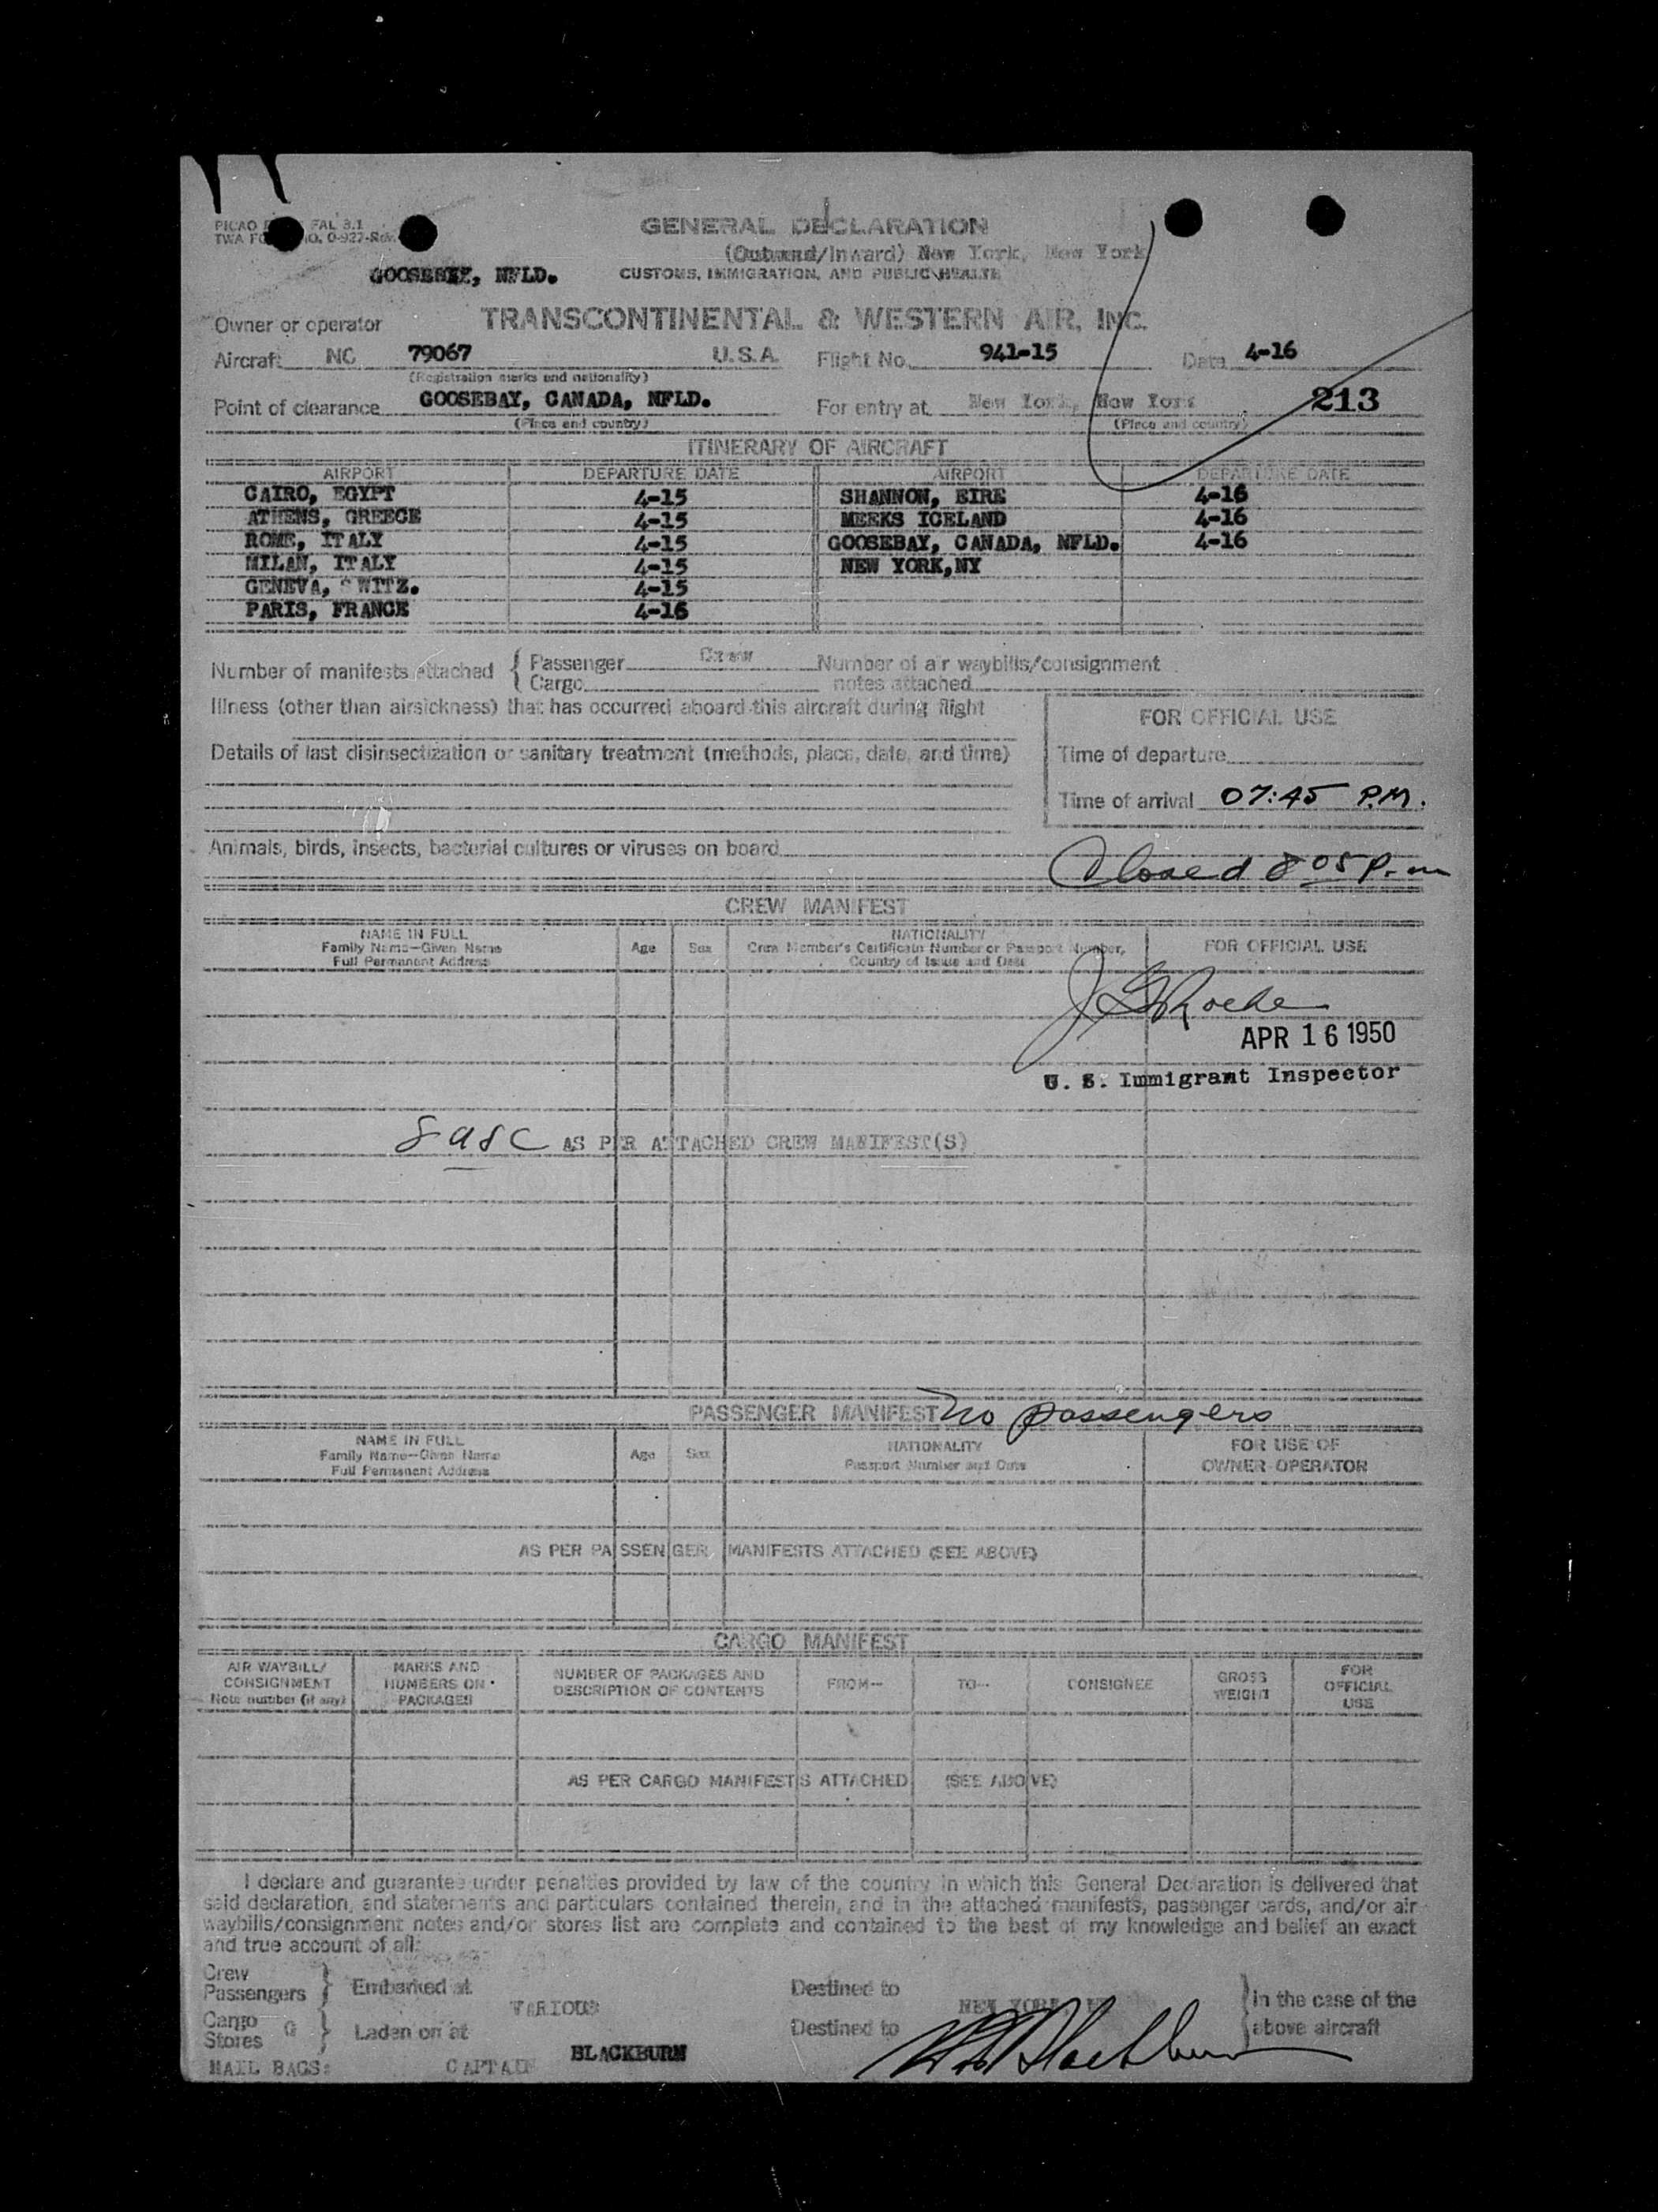 FAL 3.1
GENERAL DECLARATION
TWA
O. 0-927-Rev.
(Outward/Inward) New York, New York
GOOSEBAY, NFLD.
CUSTOMS, IMMIGRATION, AND PUBLIC HEALTH
Owner or operator TRANSCONTINENTAL & WESTERN AIR, INC.
Aircraft NC 79067 U.S.A. Flight No. 941-15 Date 4-16
(Registration marks and nationality)
Point of clearance GOOSEBAY, CANADA, NFLD. For entry at New York, New York 213
(Place and country) (Place and country)
ITINERARY OF AIRCRAFT
AIRPORT DEPARTURE DATE AIRPORT DEPARTURE DATE
CAIRO, EGYPT 4-15 SHANNON, EIRE 4-16
ATHENS, GREECE 4-15 MEEKS ICELAND 4-16
ROME, ITALY 4-15 GOOSEBAY, CANADA, NFLD. 4-16
MILAN, ITALY 4-15 NEW YORK,NY
GENEVA, SWITZ. 4-15
PARIS, FRANCE 4-16
Number of manifests attached { Passenger Crew Number of air waybills/consignment
Cargo notes attached
Illness (other than airsickness) that has occurred aboard this aircraft during flight
FOR OFFICIAL USE
Details of last disinsectization or sanitary treatment (methods, place, date, and time)
Time of departure
Time of arrival 07:45 P.M.
Animals, birds, insects, bacterial cultures or viruses on board
Closed 8 05 P.m
CREW MANIFEST
NAME IN FULL NATIONALITY
Family Name—Given Name Age Sex Crew Member's Certificate Number or Passport Number, FOR OFFICIAL USE
Full Permanent Address Country of Issue and Date
APR 16 1950
U. S. Immigrant Inspector
AS PER ATTACHED CREW MANIFEST(S)
PASSENGER MANIFEST No passengers
NAME IN FULL NATIONALITY FOR USE OF
Family Name—Given Name Age Sex Passport Number and Date OWNER-OPERATOR
Full Permanent Address
AS PER PASSENGER MANIFESTS ATTACHED (SEE ABOVE)
CARGO MANIFEST
AIR WAYBILL/ MARKS AND NUMBER OF PACKAGES AND GROSS FOR
CONSIGNMENT NUMBERS ON DESCRIPTION OF CONTENTS FROM— TO— CONSIGNEE WEIGHT OFFICIAL
Note number (if any) PACKAGES USE
AS PER CARGO MANIFESTS ATTACHED (SEE ABOVE)
I declare and guarantee under penalties provided by law of the country in which this General Declaration is delivered that
said declaration, and statements and particulars contained therein, and in the attached manifests, passenger cards, and/or air
waybills/consignment notes and/or stores list are complete and contained to the best of my knowledge and belief an exact
and true account of all:
Crew
Passengers } Embarked at Destined to In the case of the
VARIOUS NEW YORK, NY
Cargo
Stores } Laden on at Destined to above aircraft
MAIL BAGS: CAPTAIN BLACKBURN